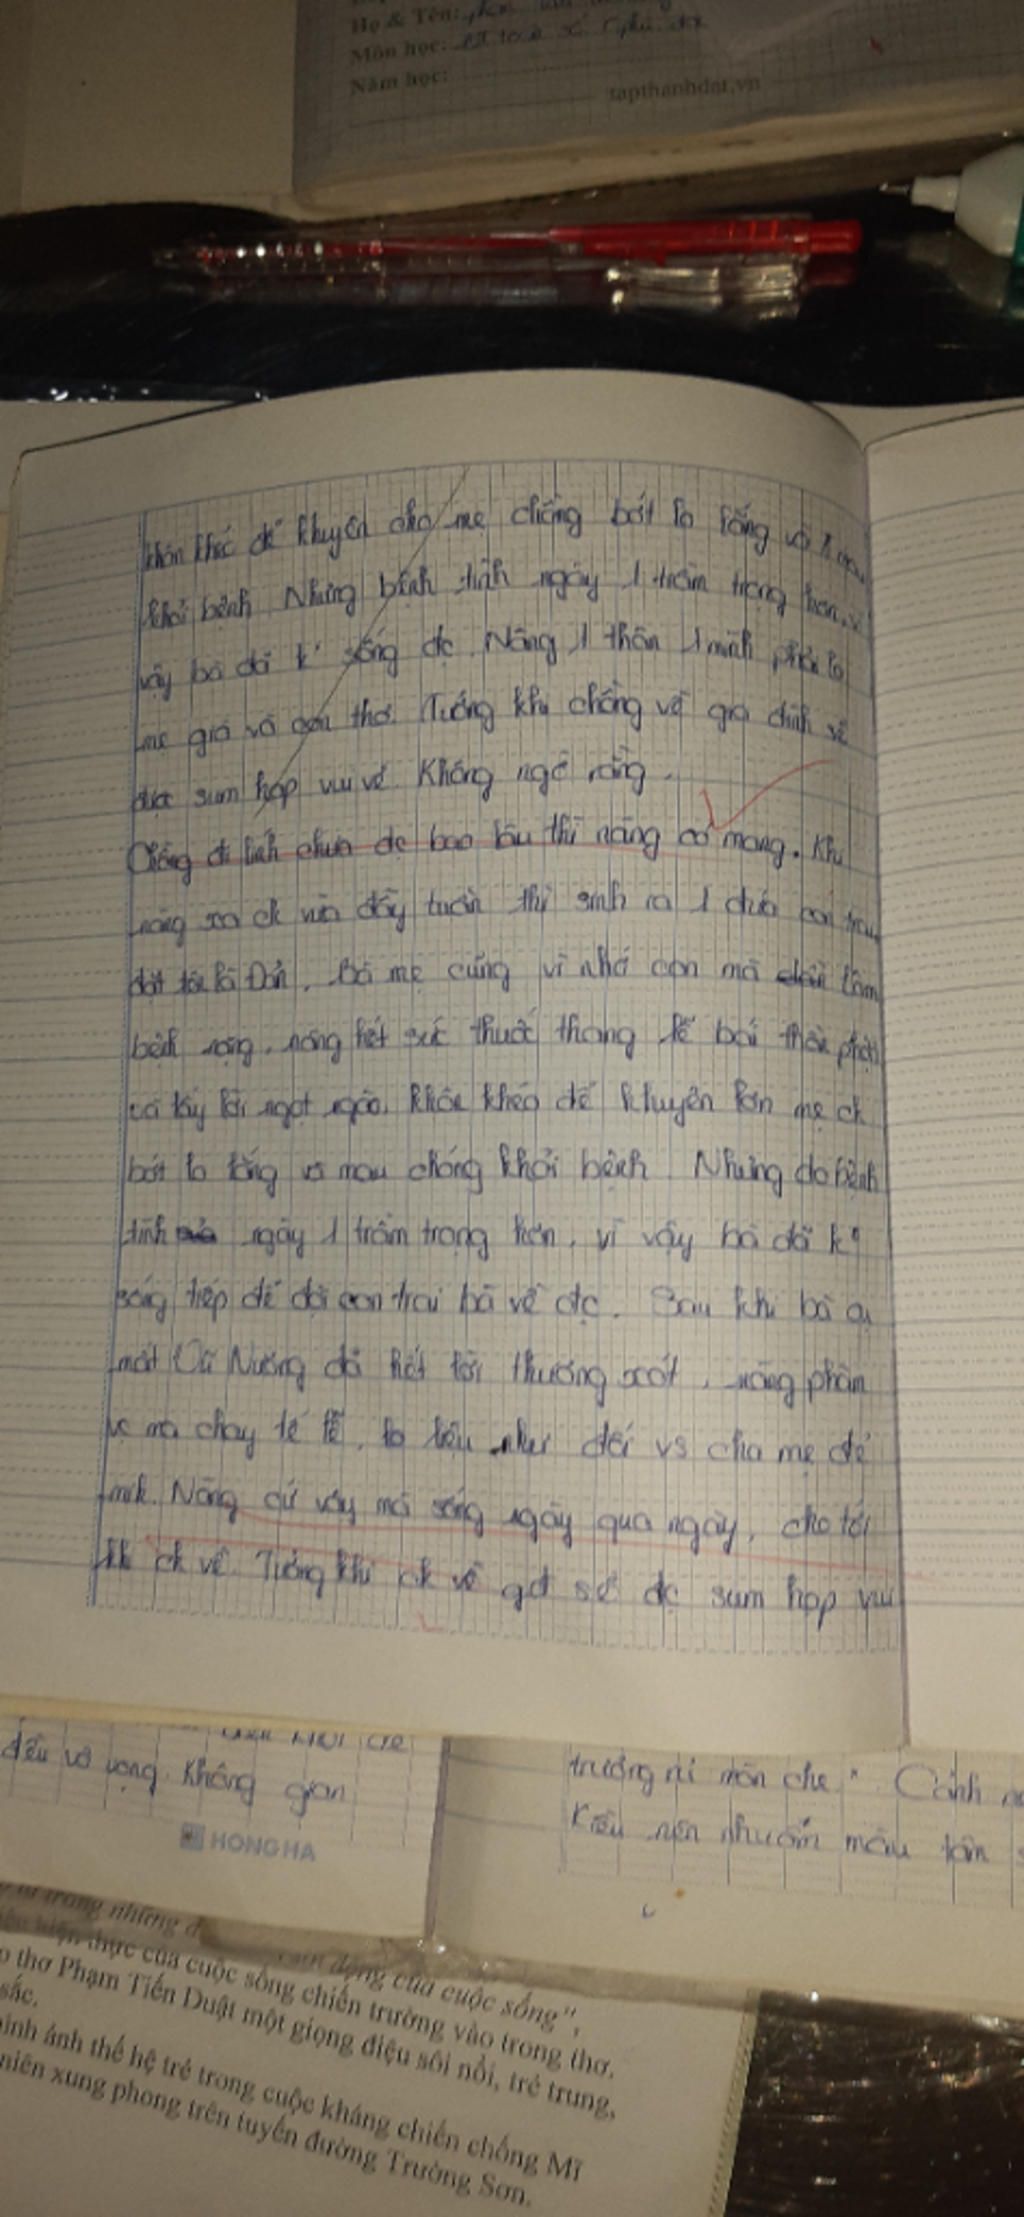 Họ & Tên:
Môn học:
Năm học:
tapthanhdat.vn
khôn khéo để khuyên cho mẹ chồng bớt lo lắng và
khỏi bệnh Nhưng bệnh tình ngày 1 trầm trọng hơn, vì
vậy bà đã k sống đc. Nàng 1 thân 1 mình phải lo
mẹ già và con thơ. Tưởng khi chồng về gia đình sẽ
được sum họp vui vẻ Không ngờ rằng.
Chồng đi lính chưa đc bao lâu thì nàng có mang. Khi
nàng xa ck vừa đầy tuần thì sinh ra 1 đứa con trai
đặt tên là Đản. Bà mẹ cũng vì nhớ con mà lâm
bệnh nặng, nàng hết sức thuốc thang lễ bái thần phật
và lấy lời ngọt ngào, khôn khéo để khuyên lơn mẹ ck
bớt lo lắng và mau chóng khỏi bệnh Nhưng do bệnh
tình ngày 1 trầm trọng hơn, vì vậy bà đã k
sống tiếp để đợi con trai bà về đc. Sau khi bà
mất Vũ Nương đã hết lời thương xót, nàng phàm
vc ma chay tế lễ, lo liệu như đối vs cha mẹ đẻ
mk. Nàng cứ vậy mà sống ngày qua ngày, cho tới
khi ck về. Tưởng khi ck về gđ sẽ đc sum họp vui
đều vô vọng. Không gian
HONG HA
trướng rủ màn che". Cảnh
Kiều nên nhuốm màu
trong những
của cuộc sống",
hiện thực của cuộc sống chiến trường vào trong thơ.
thơ Phạm Tiến Duật một giọng điệu sôi nổi, trẻ trung,
sắc.
hình ảnh thế hệ trẻ trong cuộc kháng chiến chống Mĩ
niên xung phong trên tuyến đường Trường Sơn.